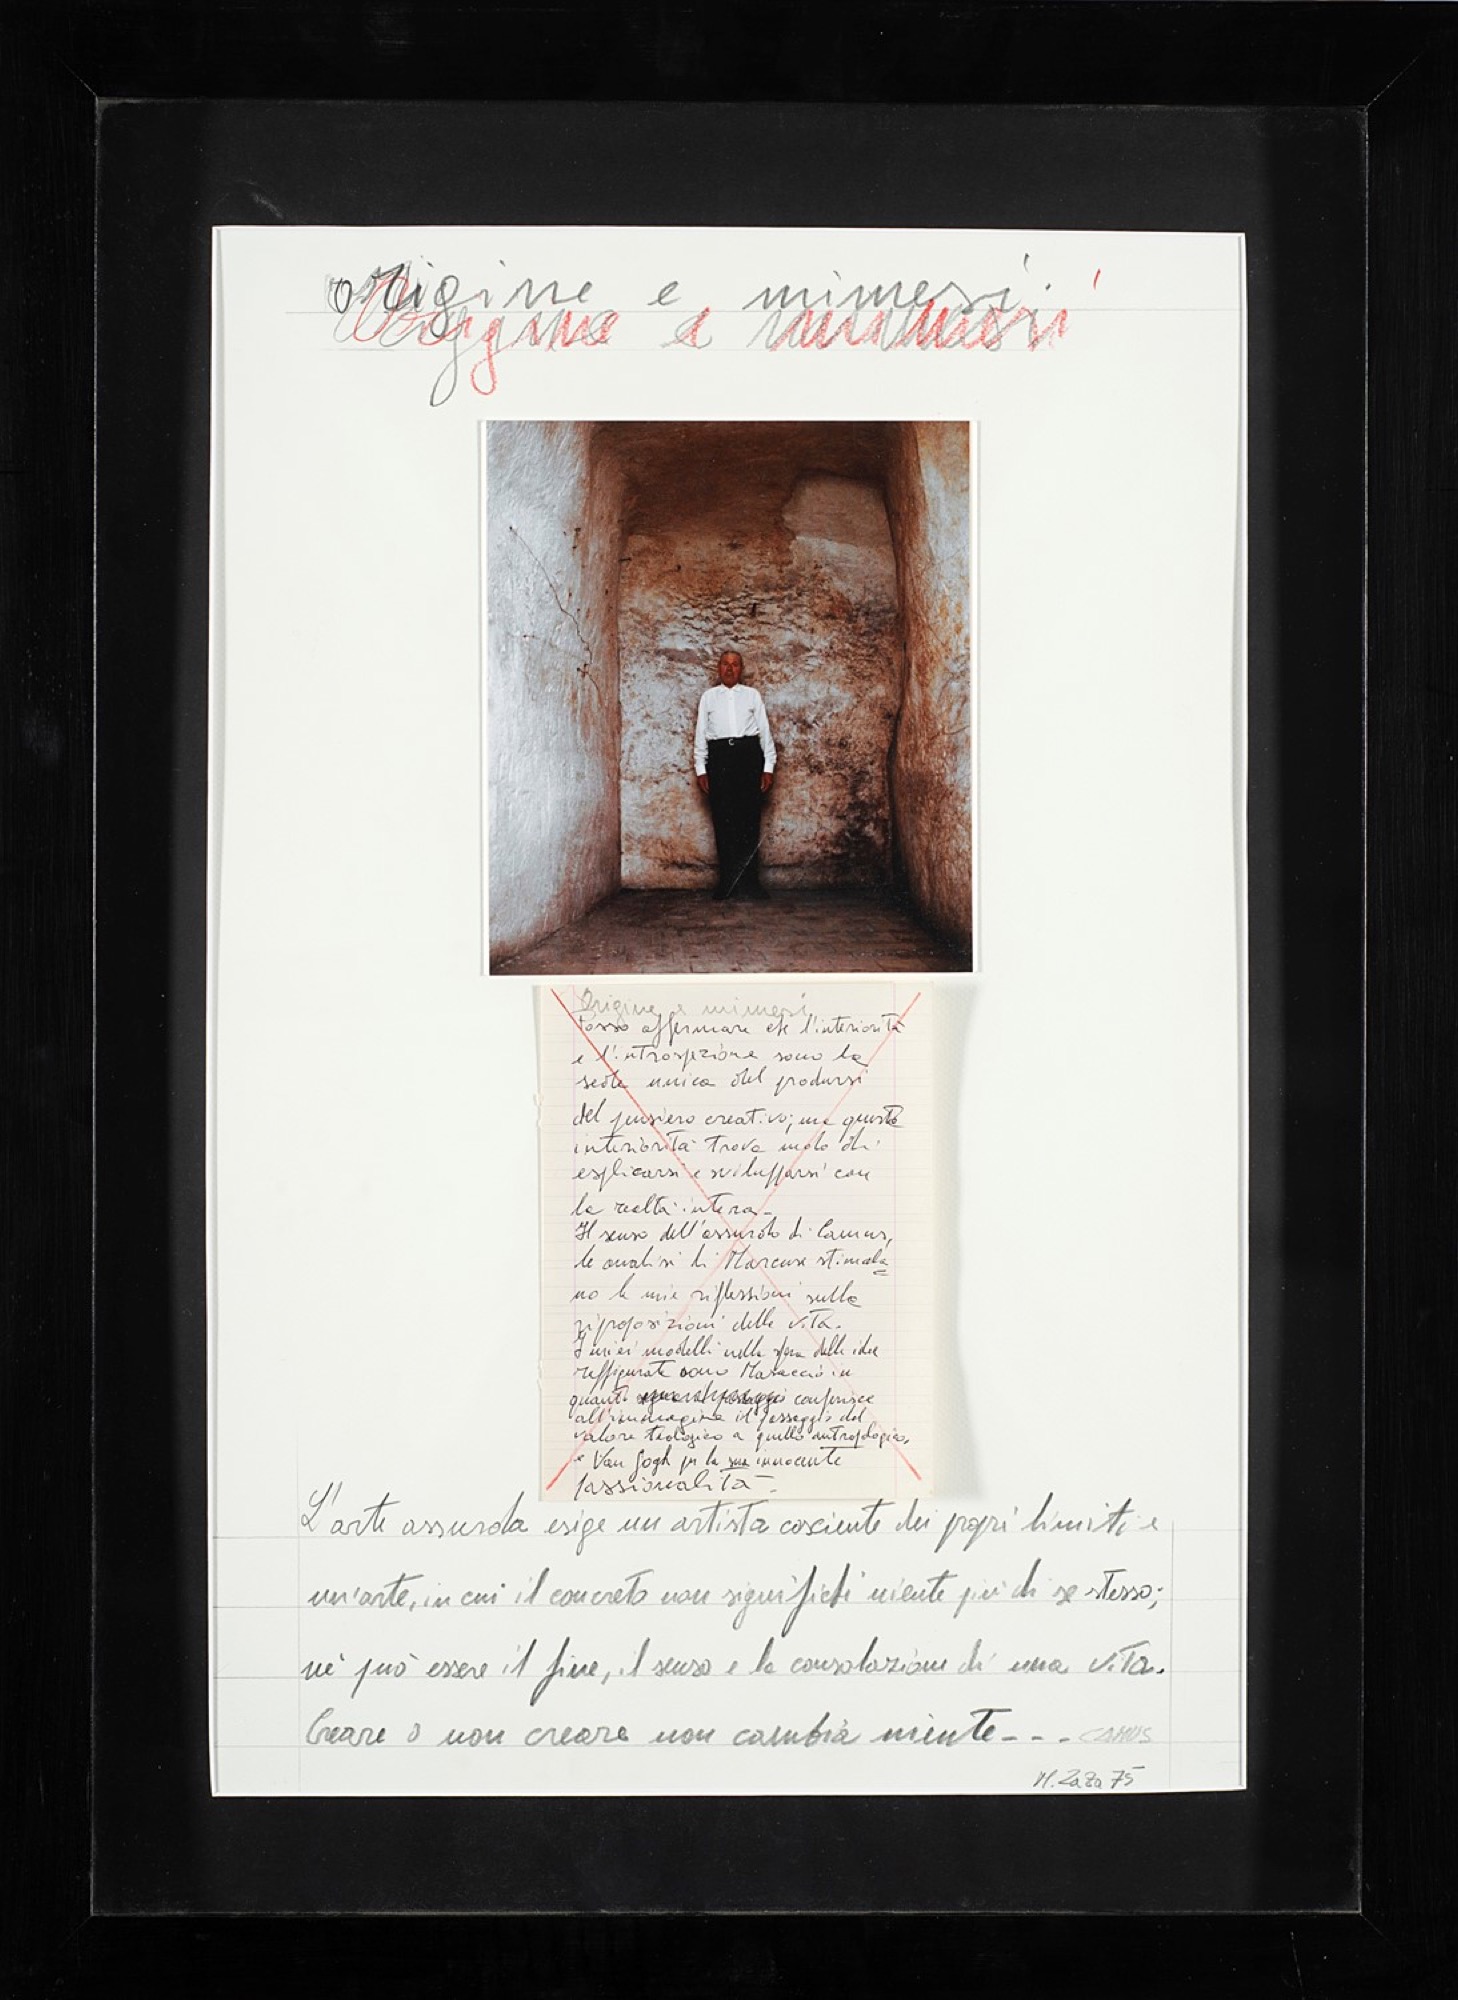 origine e mimesi
Origine e mimesi
Origine e mimesi
Posso affermare che l'interiorità
e l'introspezione sono la
sede unica del prodursi
del pensiero creativo; ma questa
interiorità trova modo di
esplicarsi e svilupparsi con
la realtà intera_
Il senso dell'assurdo di Camus,
le analisi di Marcuse stimola
no le mie riflessioni sulle
riproposizioni della vita.
I miei modelli nella sfera delle idee
raffigurate sono Masaccio in
quanto conferisce
all'immagine il passaggio del
valore teologico a quello antropologico,
e Van Gogh per la sua innocente
passionalità_
L'arte assurda esige un artista cosciente dei propri limiti e
un'arte, in cui il concreto non significhi niente più di se stesso;
nè può essere il fine, il senso e la consolazione di una vita.
Creare o non creare non cambia niente_ _ _ CAMUS
M. Zaza 75